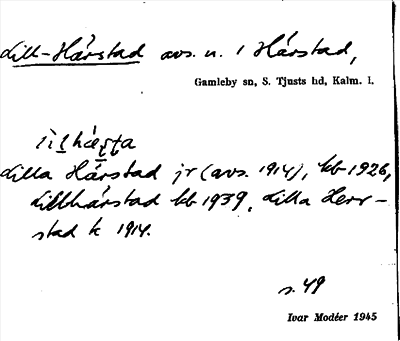 Lill-Hårstad avs. u. 1 Hårstad,
Gamleby sn, S. Tjusts hd, Kalm. l.
Lilla Hårstad jr (avs. 1914), kb 1926,
Lillhårstad kb 1939, Lilla Herr-
stad k 1914.
s. 49
Ivar Modéer 1945